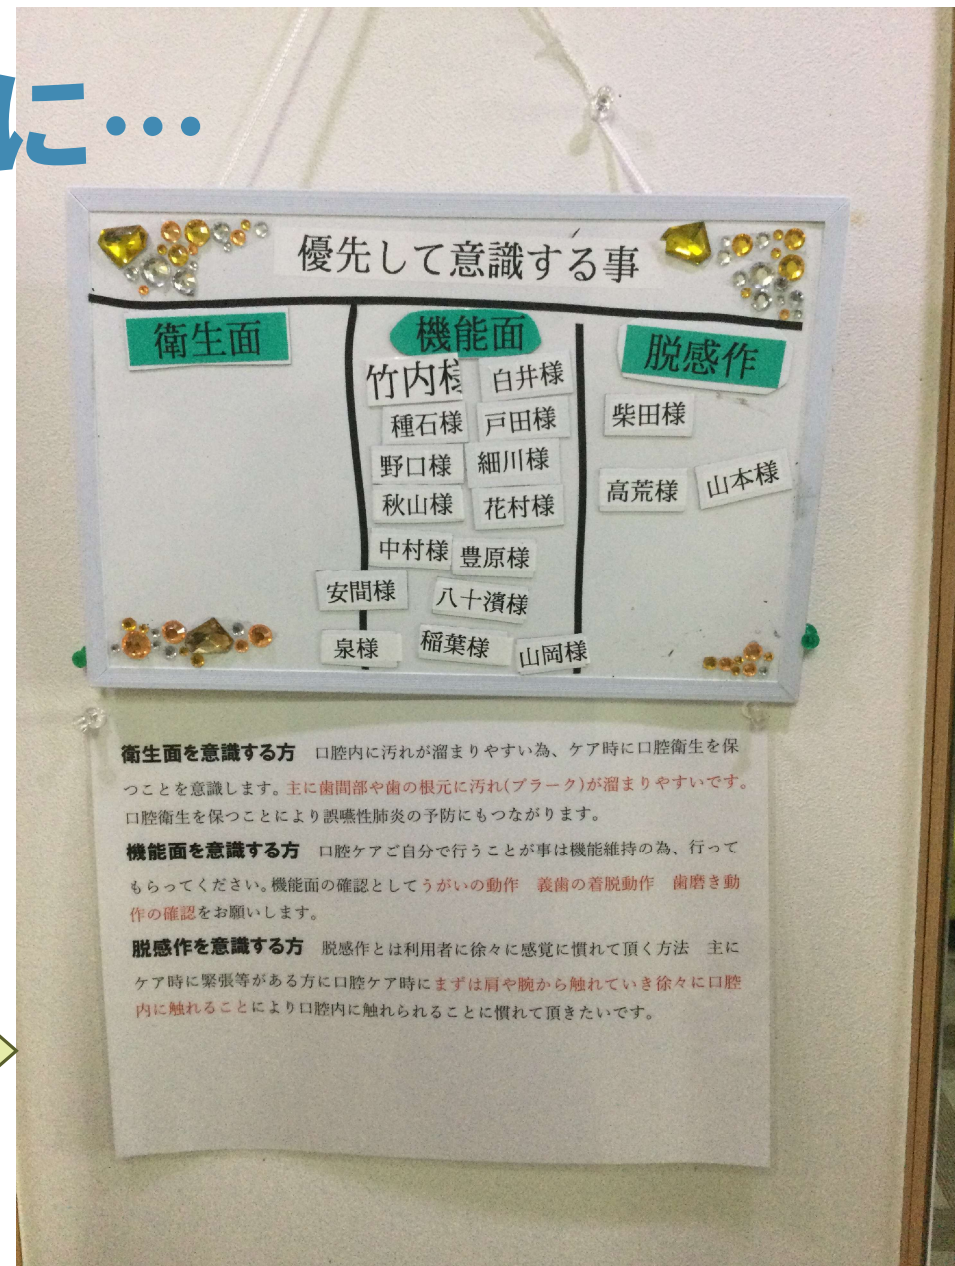 に…
優先して意識する事
衛生面 機能面 脱感作
竹内様 白井様
種石様 戸田様 柴田様
野口様 細川様
秋山様 花村様 高荒様 山本様
中村様 豊原様
安間様 八十濱様
泉様 稲葉様 山岡様
衛生面を意識する方 口腔内に汚れが溜まりやすい為、ケア時に口腔衛生を保
つことを意識します。主に歯間部や歯の根元に汚れ(プラーク)が溜まりやすいです。
口腔衛生を保つことにより誤嚥性肺炎の予防にもつながります。
機能面を意識する方 口腔ケアご自分で行うことが事は機能維持の為、行って
もらってください。機能面の確認としてうがいの動作 義歯の着脱動作 歯磨き動
作の確認をお願いします。
脱感作を意識する方 脱感作とは利用者に徐々に感覚に慣れて頂く方法 主に
ケア時に緊張等がある方に口腔ケア時にまずは肩や腕から触れていき徐々に口腔
内に触れることにより口腔内に触れられることに慣れて頂きたいです。